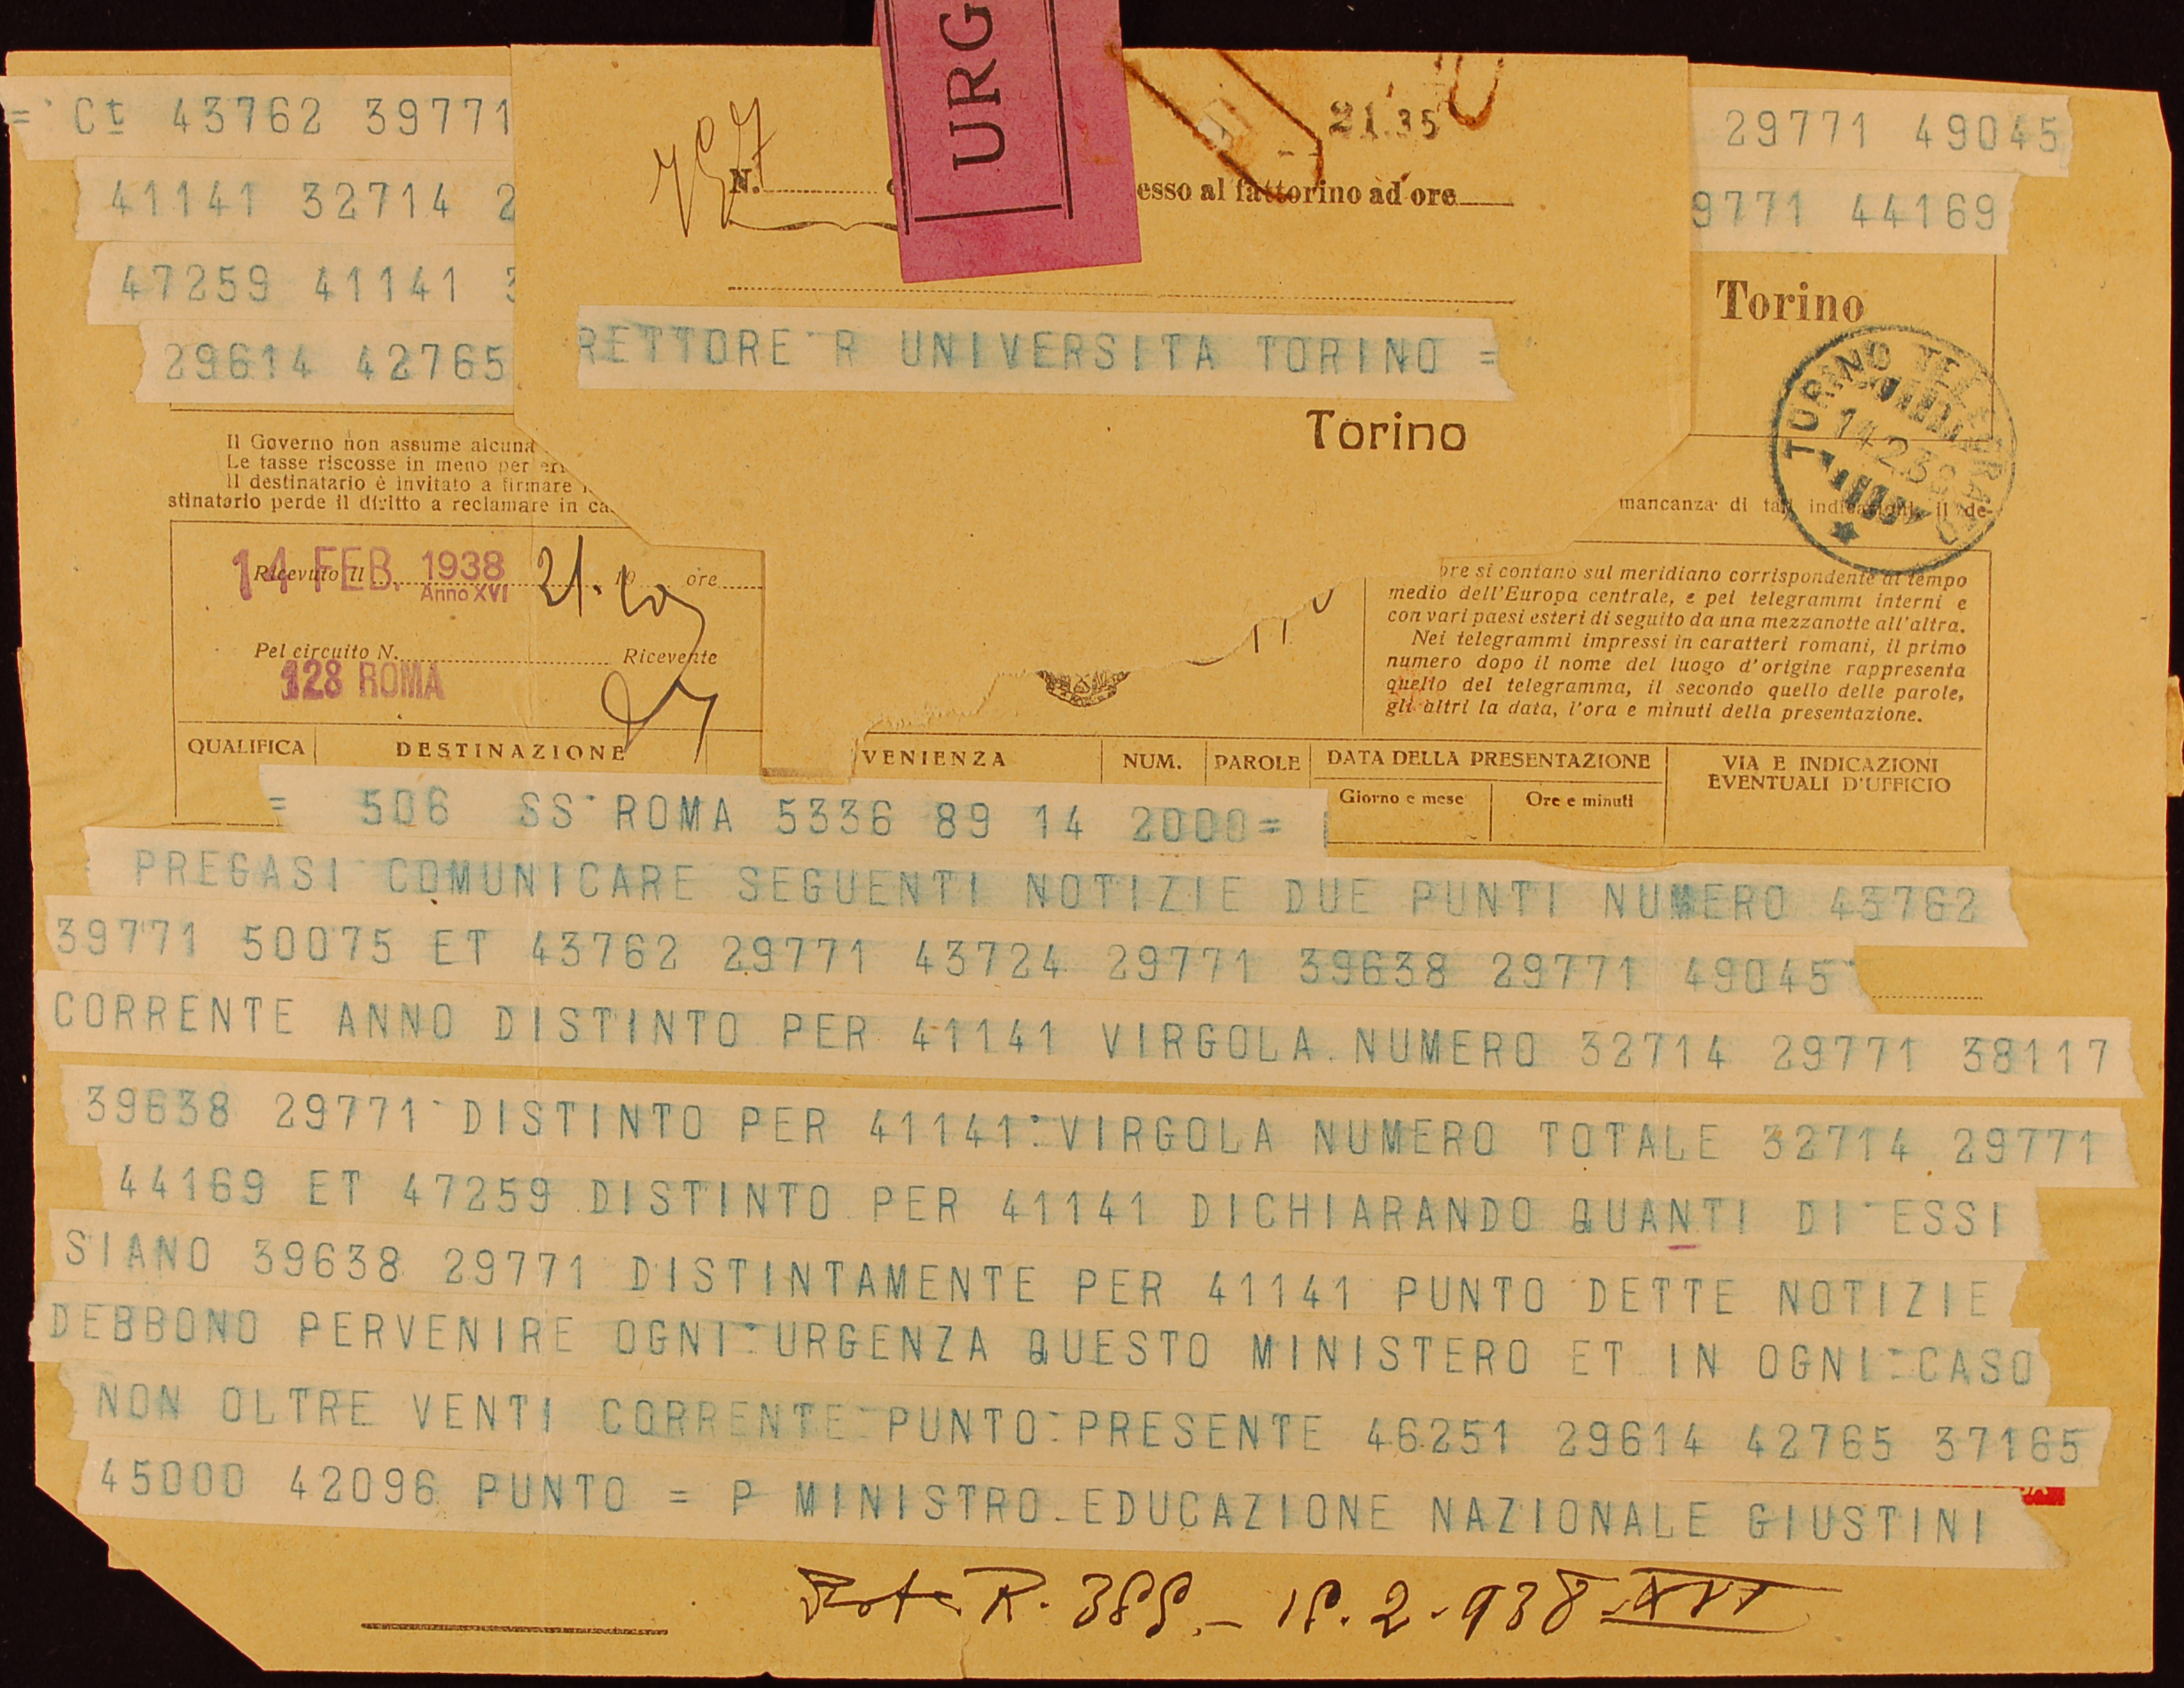 = Ct 43762 39771
41141 32714 2
47259 41141 3
29614 42765
URG
21.35
N.
esso al fattorino ad ore
RETTORE R UNIVERSITA TORINO =
Torino
29771 49045
9771 44169
Torino
TORINO TELEGRAFO
14 2 38
Il Governo non assume alcuna
Le tasse riscosse in meno per err
Il destinatario è invitato a firmare
stinatario perde il diritto a reclamare in ca
mancanza di tali indicazioni il de-
Ricevuto il 14 FEB. 1938 Anno XVI 21.10 ore
Pel circuito N. Ricevente
128 ROMA
ore si contano sul meridiano corrispondente al tempo
medio dell'Europa centrale, e pei telegrammi interni e
con vari paesi esteri di seguito da una mezzanotte all'altra.
Nei telegrammi impressi in caratteri romani, il primo
numero dopo il nome del luogo d'origine rappresenta
quello del telegramma, il secondo quello delle parole,
gli altri la data, l'ora e minuti della presentazione.
QUALIFICA DESTINAZIONE VENIENZA NUM. PAROLE DATA DELLA PRESENTAZIONE VIA E INDICAZIONI
EVENTUALI D'UFFICIO
Giorno e mese Ore e minuti
= 506 SS ROMA 5336 89 14 2000=
PREGASI COMUNICARE SEGUENTI NOTIZIE DUE PUNTI NUMERO 43762
39771 50075 ET 43762 29771 43724 29771 39638 29771 49045
CORRENTE ANNO DISTINTO PER 41141 VIRGOLA NUMERO 32714 29771 38117
39638 29771 DISTINTO PER 41141 VIRGOLA NUMERO TOTALE 32714 29771
44169 ET 47259 DISTINTO PER 41141 DICHIARANDO QUANTI DI ESSI
SIANO 39638 29771 DISTINTAMENTE PER 41141 PUNTO DETTE NOTIZIE
DEBBONO PERVENIRE OGNI URGENZA QUESTO MINISTERO ET IN OGNI CASO
NON OLTRE VENTI CORRENTE PUNTO PRESENTE 46251 29614 42765 37165
45000 42096 PUNTO = P MINISTRO EDUCAZIONE NAZIONALE GIUSTINI
R. 2 - 938 XVI